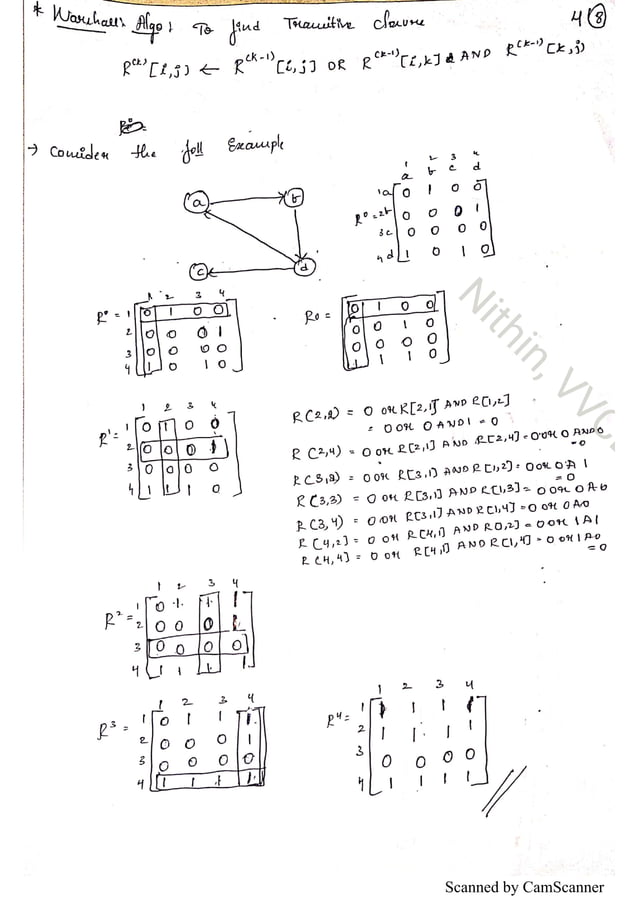 * Warshall's Algo: To find Transitive closure 4 (8)
R(k)[i,j] ← R(k-1)[i,j] OR R(k-1)[i,k] & AND R(k-1)[k,j)
→ Consider the foll Example
a b c d
1 2 3 4
a b c d
1a 0 1 0 0
R⁰ = 2b 0 0 0 1
3c 0 0 0 0
4d 1 0 1 0
1 2 3 4
R⁰ = 1 0 1 0 0
2 0 0 0 1
3 0 0 0 0
4 1 0 1 0
R0 = 0 1 0 0
0 0 1 0
0 0 0 0
1 1 1 0
1 2 3 4
R¹ = 1 0 1 0 0
2 0 0 0 1
3 0 0 0 0
4 1 1 1 0
R(2,2) = 0 OR R[2,1] AND R[1,2]
= 0 OR 0 AND 1 = 0
R(2,4) = 0 OR R[2,1] AND R[2,4] = 0 OR 0 AND 0 = 0
R(3,2) = 0 OR R[3,1] AND R[1,2] = 0 OR 0 A 1 = 0
R(3,3) = 0 OR R[3,1] AND R[1,3] = 0 OR 0 A 0
R(3,4) = 0 OR R[3,1] AND R[1,4] = 0 OR 0 A 0
R[4,2] = 0 OR R[4,1] AND R0,2] = 0 OR 1 A 1
R(4,4] = 0 OR R[4,1] AND R[1,4] = 0 OR 1 A 0 = 0
1 2 3 4
R² = 1 0 1 1 1
2 0 0 0 1
3 0 0 0 0
4 1 1 1 1
1 2 3 4
R³ = 1 0 1 1 1
2 0 0 0 1
3 0 0 0 0
4 1 1 1 1
1 2 3 4
R⁴ = 1 1 1 1 1
2 1 1 1 1
3 0 0 0 0
4 1 1 1 1
Nithin, VVC
Scanned by CamScanner